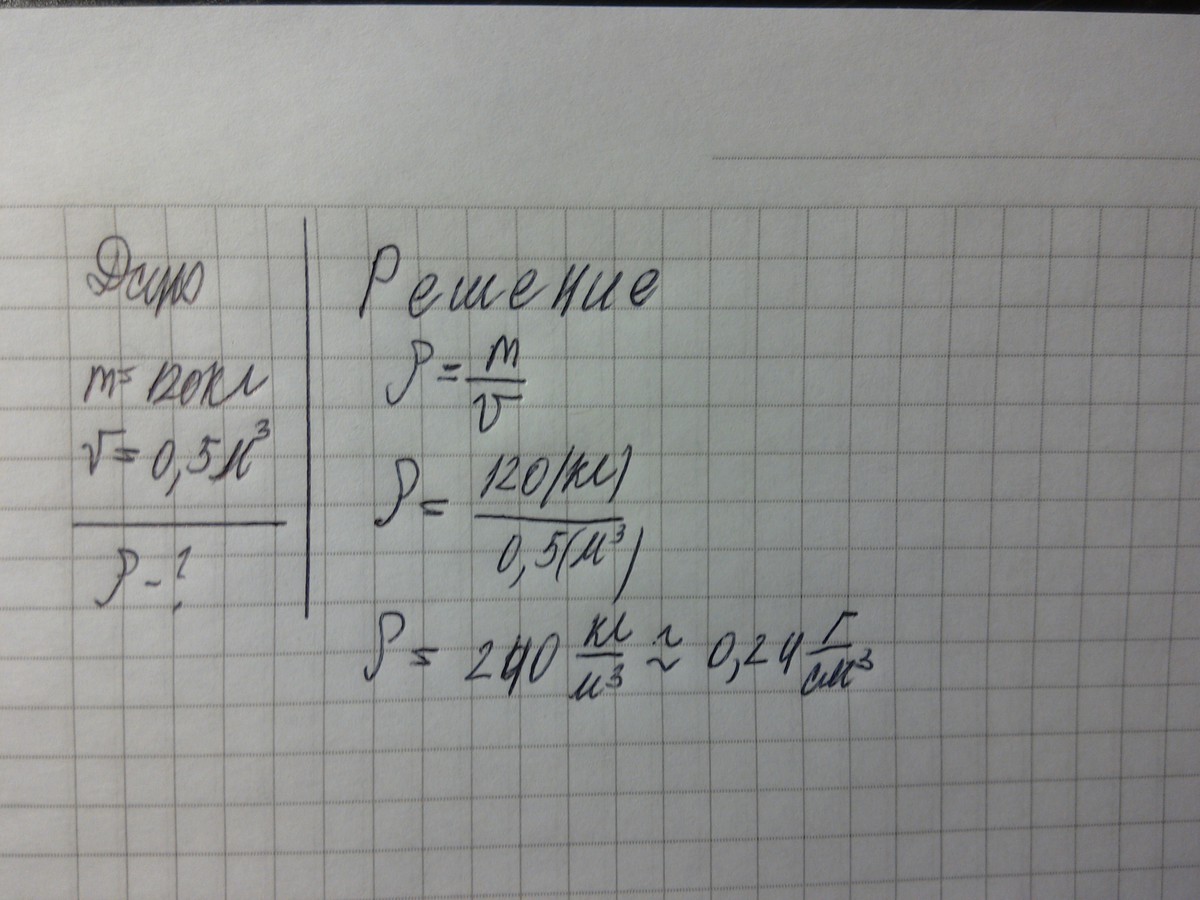 Дано
m= 120кг
V= 0,5м³
ρ-?
Решение
ρ = m/V
ρ = 120(кг)/0,5(м³)
ρ = 240 кг/м³ ≈ 0,24 г/см³